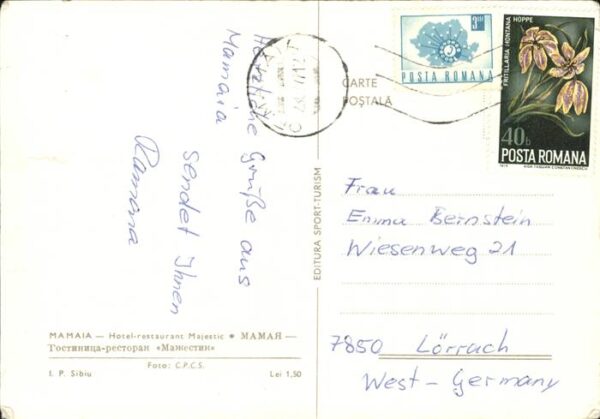 Herzliche Grüße aus
Mamaia
sendet Ihnen
Ramona
MAMAIA — Hotel-restaurant Majestic * МАМАЯ —
Гостиница-ресторан «Мажестик»
Foto: C.P.C.S.
I. P. Sibiu
Lei 1,50
EDITURA SPORT-TURISM
CARTE
POŞTALĂ
3 LEI
POSTA ROMANA
FRITILLARIA MONTANA
HOPPE
40b
POSTA ROMANA
Frau
Emma Bernstein
Wiesenweg 21
7850 Lörrach
West-Germany